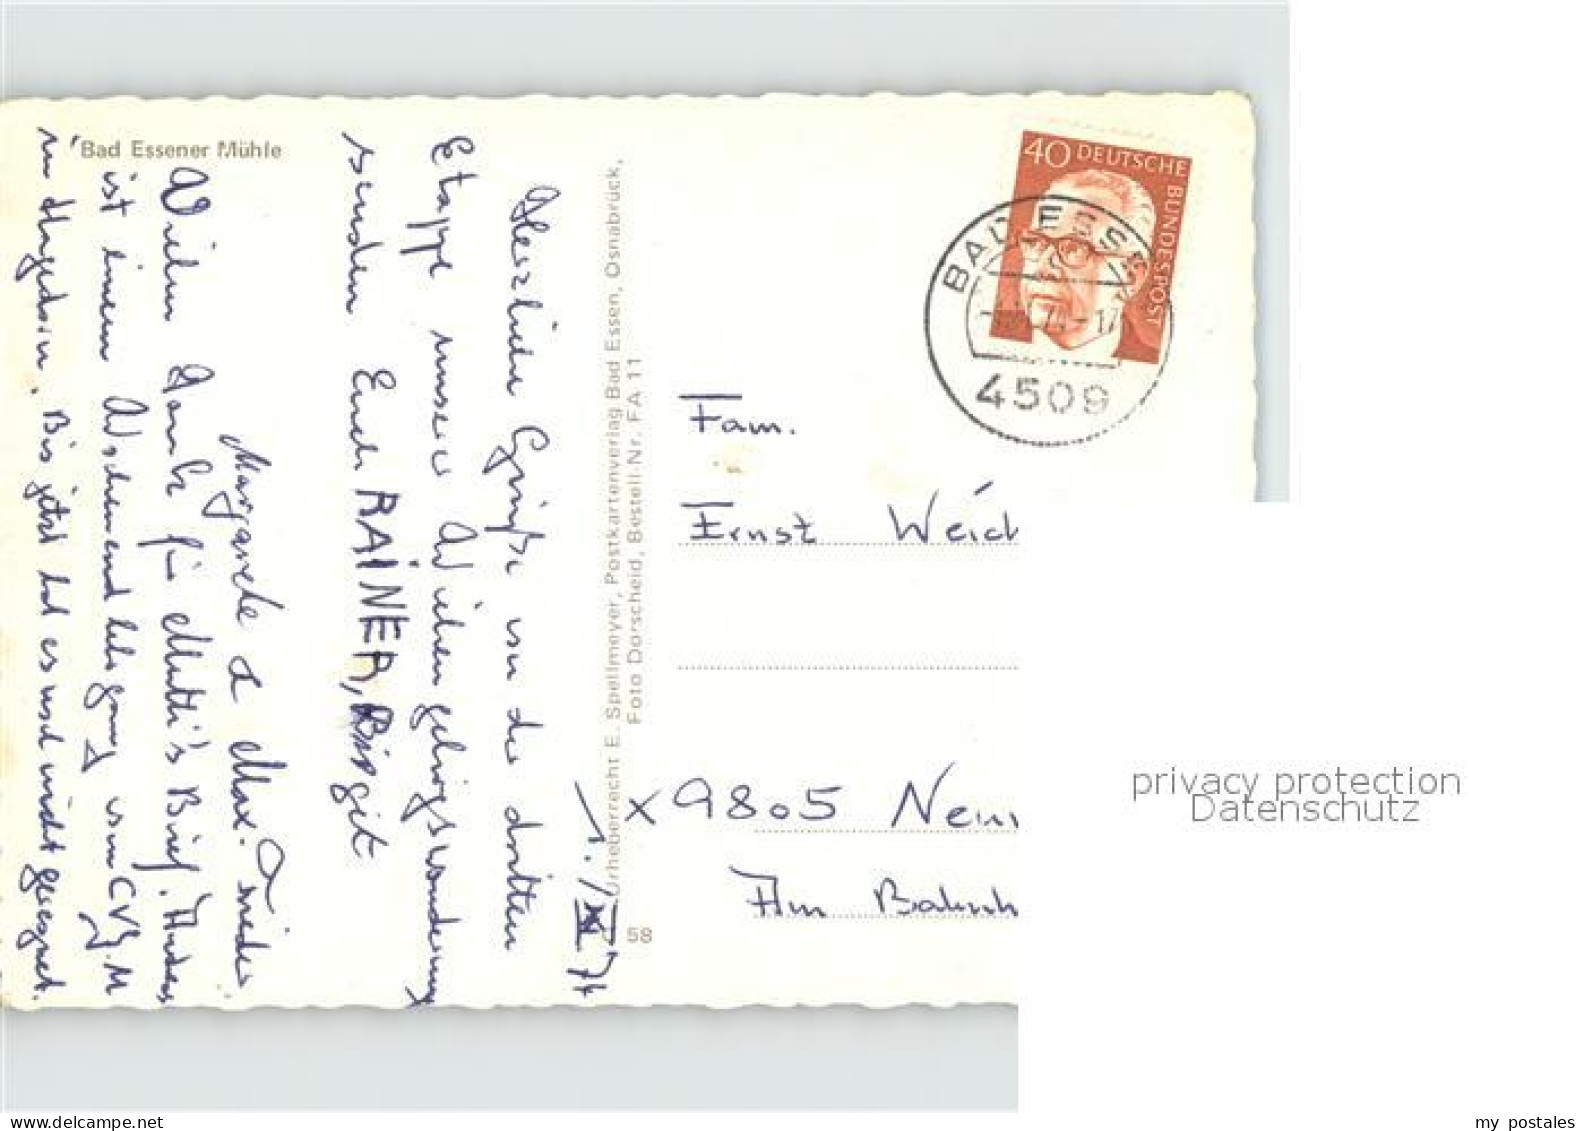 Bad Essener Mühle
1. / XI 74
Herzliche Grüße von der dritten
Etappe unserer Wiehengebirgswanderung
senden Euch RAINER, Birgit
Margarete & Max. Frieder
Vielen Dank für Mutti's Brief. Anders
ist einem Wochenendlehrgang vom CVJM
in Hagedorn. Bis jetzt hat es noch nicht geregnet.
Urheberrecht E. Spellmeyer, Postkartenverlag Bad Essen, Osnabrück,
Foto Dorscheid, Bestell-Nr. FA 11
58
40 DEUTSCHE
BUNDESPOST
BAD ESSEN
4509
Fam.
Ernst Weich
x 9805 Neu
Am Bahnh
privacy protection
Datenschutz
my postales